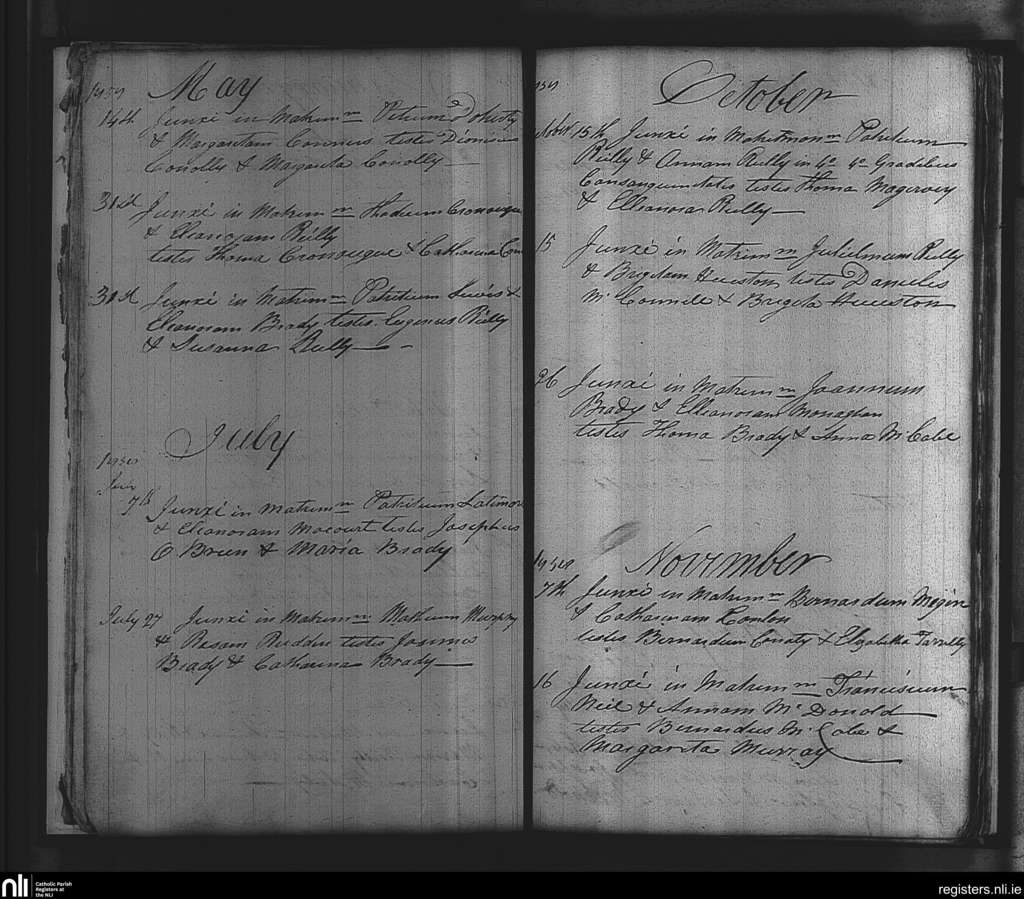 May
14th Junxi in Matrimm Petrum Doherty
& Margaritam Connors testes Dionisius
Conolly & Margarita Conolly
31st Junxi in Matrimm Thadeum
& Eleanoram Reilly
testes Thoma & Catharina
31st Junxi in Matrimm Patritium &
Eleanoram Brady testes Eugenius Reilly
& Susanna Reilly
July
7th Junxi in Matrimm Patritium
& Eleanoram testes Josephus
O Brien & Maria Brady
July 27 Junxi in Matrimm Matheum Murphy
& Rosam testes Joanna
Brady & Catharina Brady
October
October 15th Junxi in Matrimonm Patritium
Reilly & Annam Reilly in 4o 4o Gradibus
Consanguinitatis testes Thoma
& Eleanora Reilly
15 Junxi in Matrimm Gulielmum Reilly
& Brigitam Hueston testes Danieles
Mc & Brigita Hueston
26 Junxi in Matrimm Joannem
Brady & Elleanoram Monaghan
testes Thoma Brady & Anna McCabe
November
7th Junxi in Matrimm Bernardum
& Catharinam Conlon
testes Bernardum Conaty & Elizabetha Farrelly
16 Junxi in Matrimm Franciscum
Neil & Annam McDonald
testes Bernardus McCabe &
Margarita Murray
nli
Catholic Parish
Registers at
the NLI
registers.nli.ie